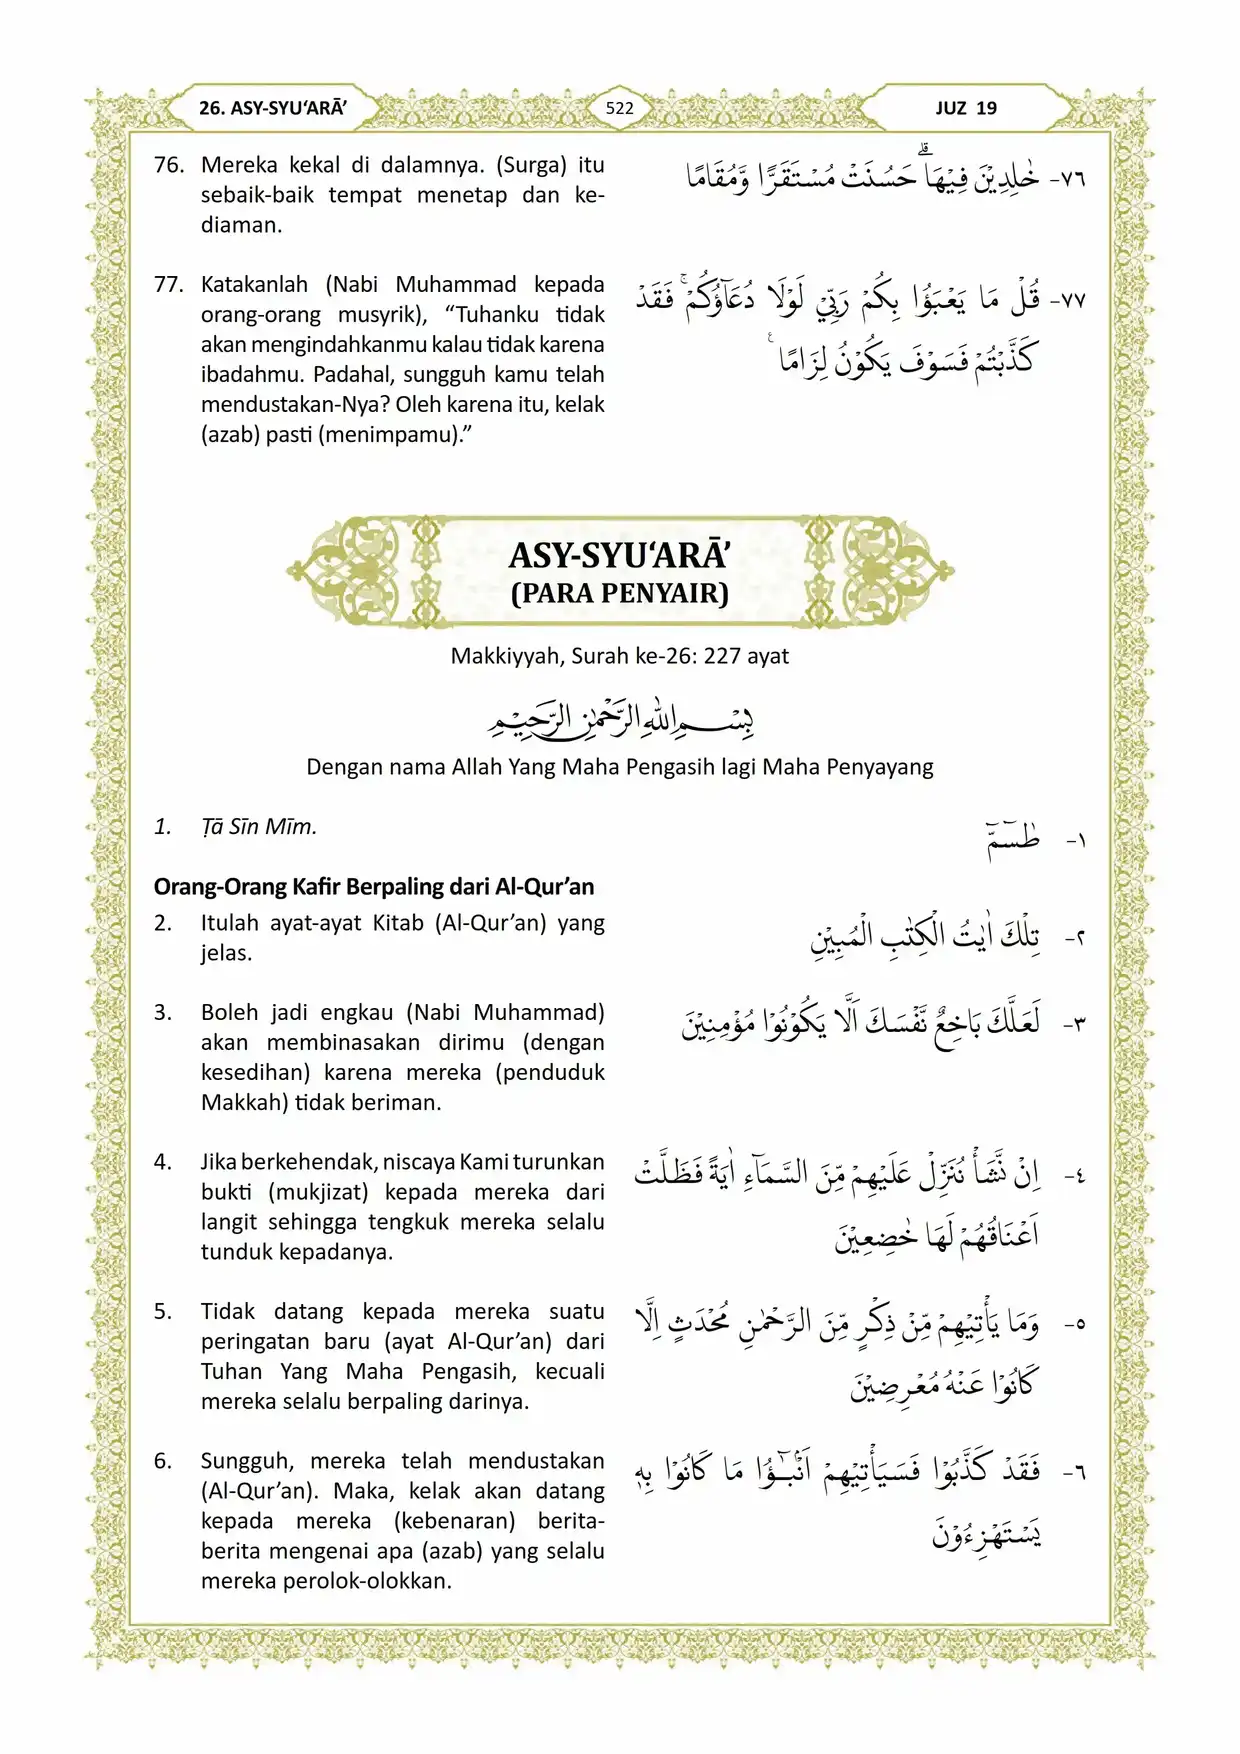 26. ASY-SYU‘ARĀ’
522
JUZ 19
76. Mereka kekal di dalamnya. (Surga) itu
sebaik-baik tempat menetap dan ke-
diaman.
٧٦- خٰلِدِيْنَ فِيْهَاۗ حَسُنَتْ مُسْتَقَرًّا وَّمُقَامًا
77. Katakanlah (Nabi Muhammad kepada
orang-orang musyrik), “Tuhanku tidak
akan mengindahkanmu kalau tidak karena
ibadahmu. Padahal, sungguh kamu telah
mendustakan-Nya? Oleh karena itu, kelak
(azab) pasti (menimpamu).”
٧٧- قُلْ مَا يَعْبَؤُا بِكُمْ رَبِّيْ لَوْلَا دُعَاۤؤُكُمْۚ فَقَدْ
كَذَّبْتُمْ فَسَوْفَ يَكُوْنُ لِزَامًا ࣖ
ASY-SYU‘ARĀ’
(PARA PENYAIR)
Makkiyyah, Surah ke-26: 227 ayat
بِسْمِ اللّٰهِ الرَّحْمٰنِ الرَّحِيْمِ
Dengan nama Allah Yang Maha Pengasih lagi Maha Penyayang
1. Ṭā Sīn Mīm.
١- طٰسۤمّۤ
Orang-Orang Kafir Berpaling dari Al-Qur’an
2. Itulah ayat-ayat Kitab (Al-Qur’an) yang
jelas.
٢- تِلْكَ اٰيٰتُ الْكِتٰبِ الْمُبِيْنِ
3. Boleh jadi engkau (Nabi Muhammad)
akan membinasakan dirimu (dengan
kesedihan) karena mereka (penduduk
Makkah) tidak beriman.
٣- لَعَلَّكَ بَاخِعٌ نَّفْسَكَ اَلَّا يَكُوْنُوْا مُؤْمِنِيْنَ
4. Jika berkehendak, niscaya Kami turunkan
bukti (mukjizat) kepada mereka dari
langit sehingga tengkuk mereka selalu
tunduk kepadanya.
٤- اِنْ نَّشَأْ نُنَزِّلْ عَلَيْهِمْ مِّنَ السَّمَاۤءِ اٰيَةً فَظَلَّتْ
اَعْنَاقُهُمْ لَهَا خٰضِعِيْنَ
5. Tidak datang kepada mereka suatu
peringatan baru (ayat Al-Qur’an) dari
Tuhan Yang Maha Pengasih, kecuali
mereka selalu berpaling darinya.
٥- وَمَا يَأْتِيْهِمْ مِّنْ ذِكْرٍ مِّنَ الرَّحْمٰنِ مُحْدَثٍ اِلَّا
كَانُوْا عَنْهُ مُعْرِضِيْنَ
6. Sungguh, mereka telah mendustakan
(Al-Qur’an). Maka, kelak akan datang
kepada mereka (kebenaran) berita-
berita mengenai apa (azab) yang selalu
mereka perolok-olokkan.
٦- فَقَدْ كَذَّبُوْا فَسَيَأْتِيْهِمْ اَنْۢبـٰۤؤُا مَا كَانُوْا بِهٖ
يَسْتَهْزِءُوْنَ